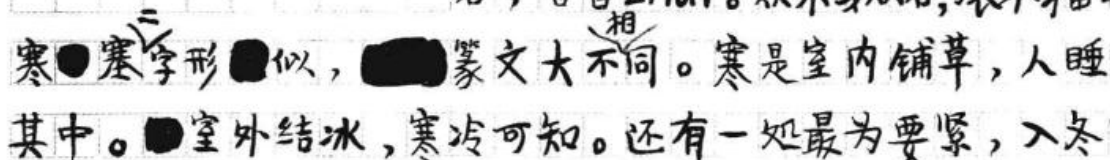 寒塞二字形似，篆文大不相同。寒是室内铺草，人睡
其中。室外结冰，寒冷可知。还有一处最为要紧，入冬